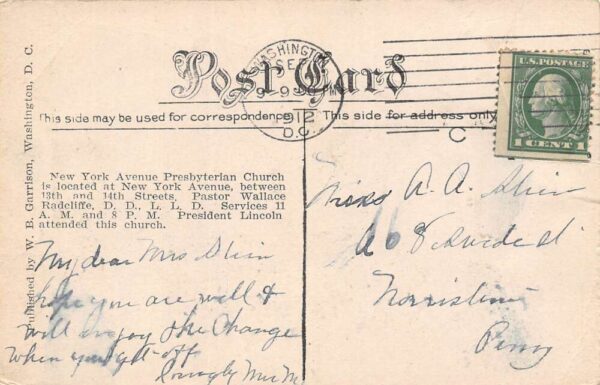 Post Card
WASHINGTON
1912
D.C.
U.S. POSTAGE
1 CENT 1
This side may be used for correspondence
This side for address only
C
Published by W. B. Garrison, Washington, D. C.
New York Avenue Presbyterian Church
is located at New York Avenue, between
13th and 14th Streets, Pastor Wallace
Radcliffe, D. D., L. L. D. Services 11
A. M. and 8 P. M. President Lincoln
attended this church.
My dear Mrs
hope you are well &
will enjoy the change
when you get off
Lovingly
A. A.
Norristown
Penn